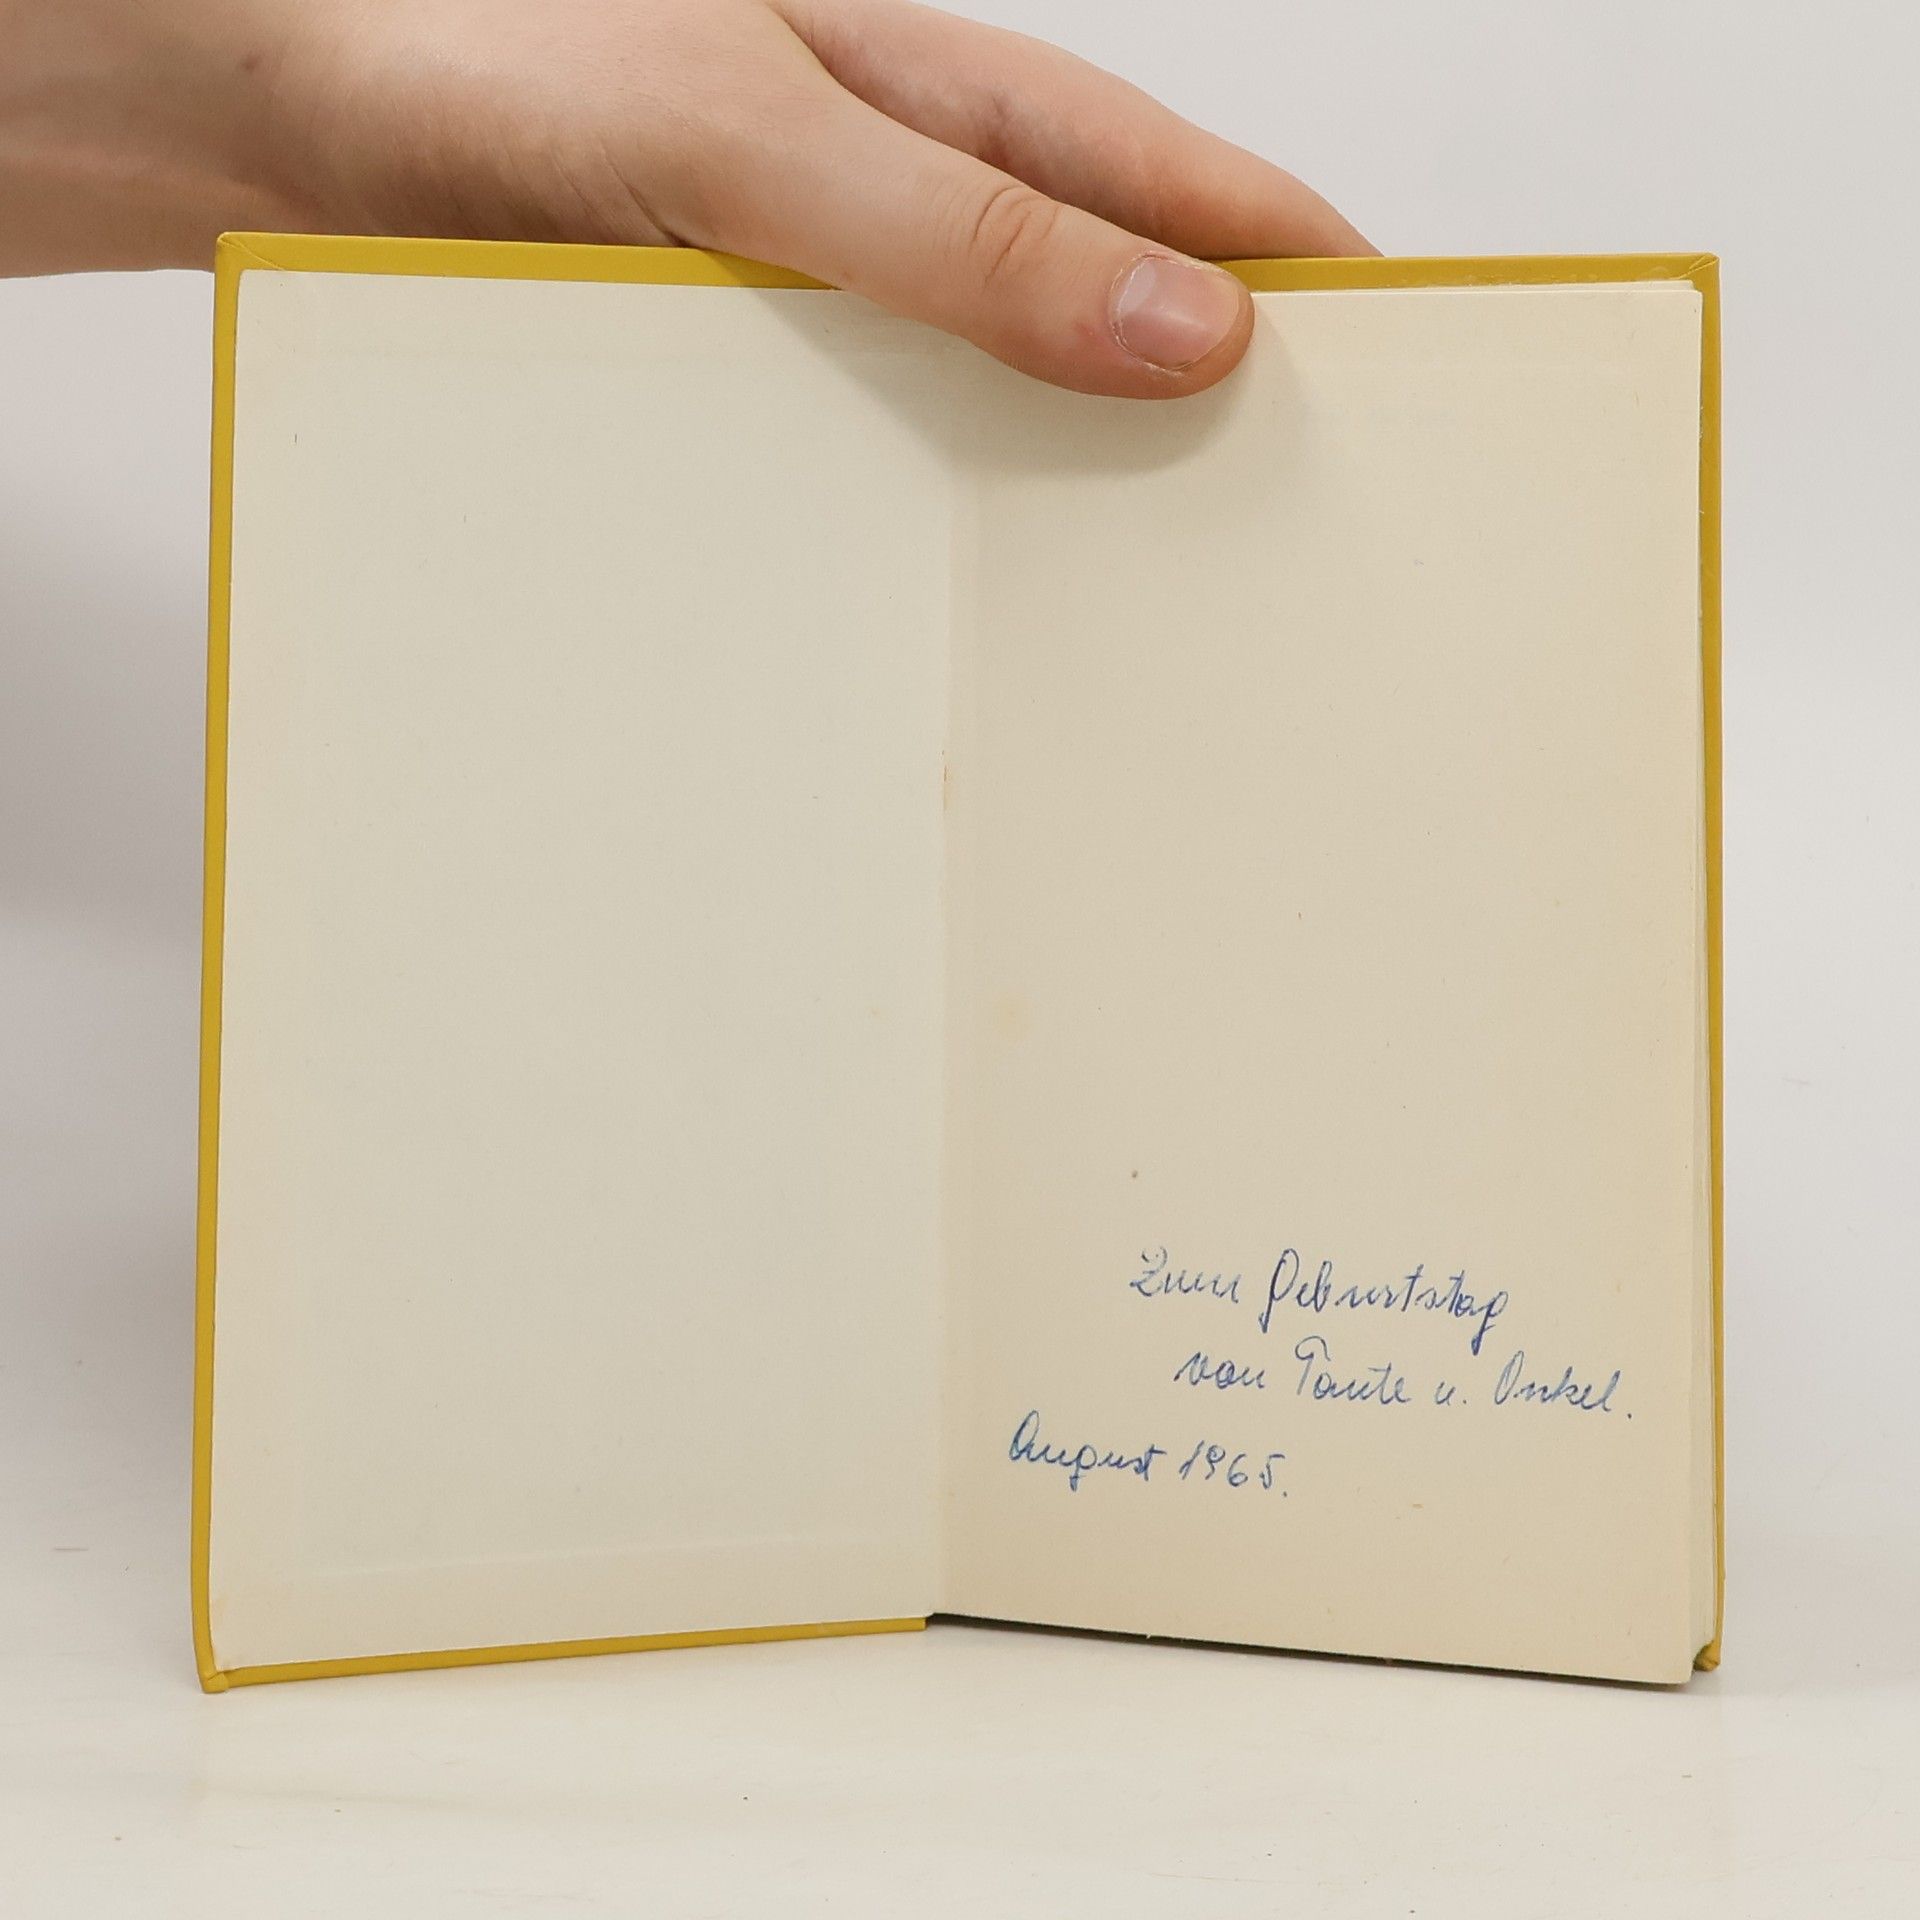 Zum Geburtstag
von Tante u. Onkel.
August 1965.